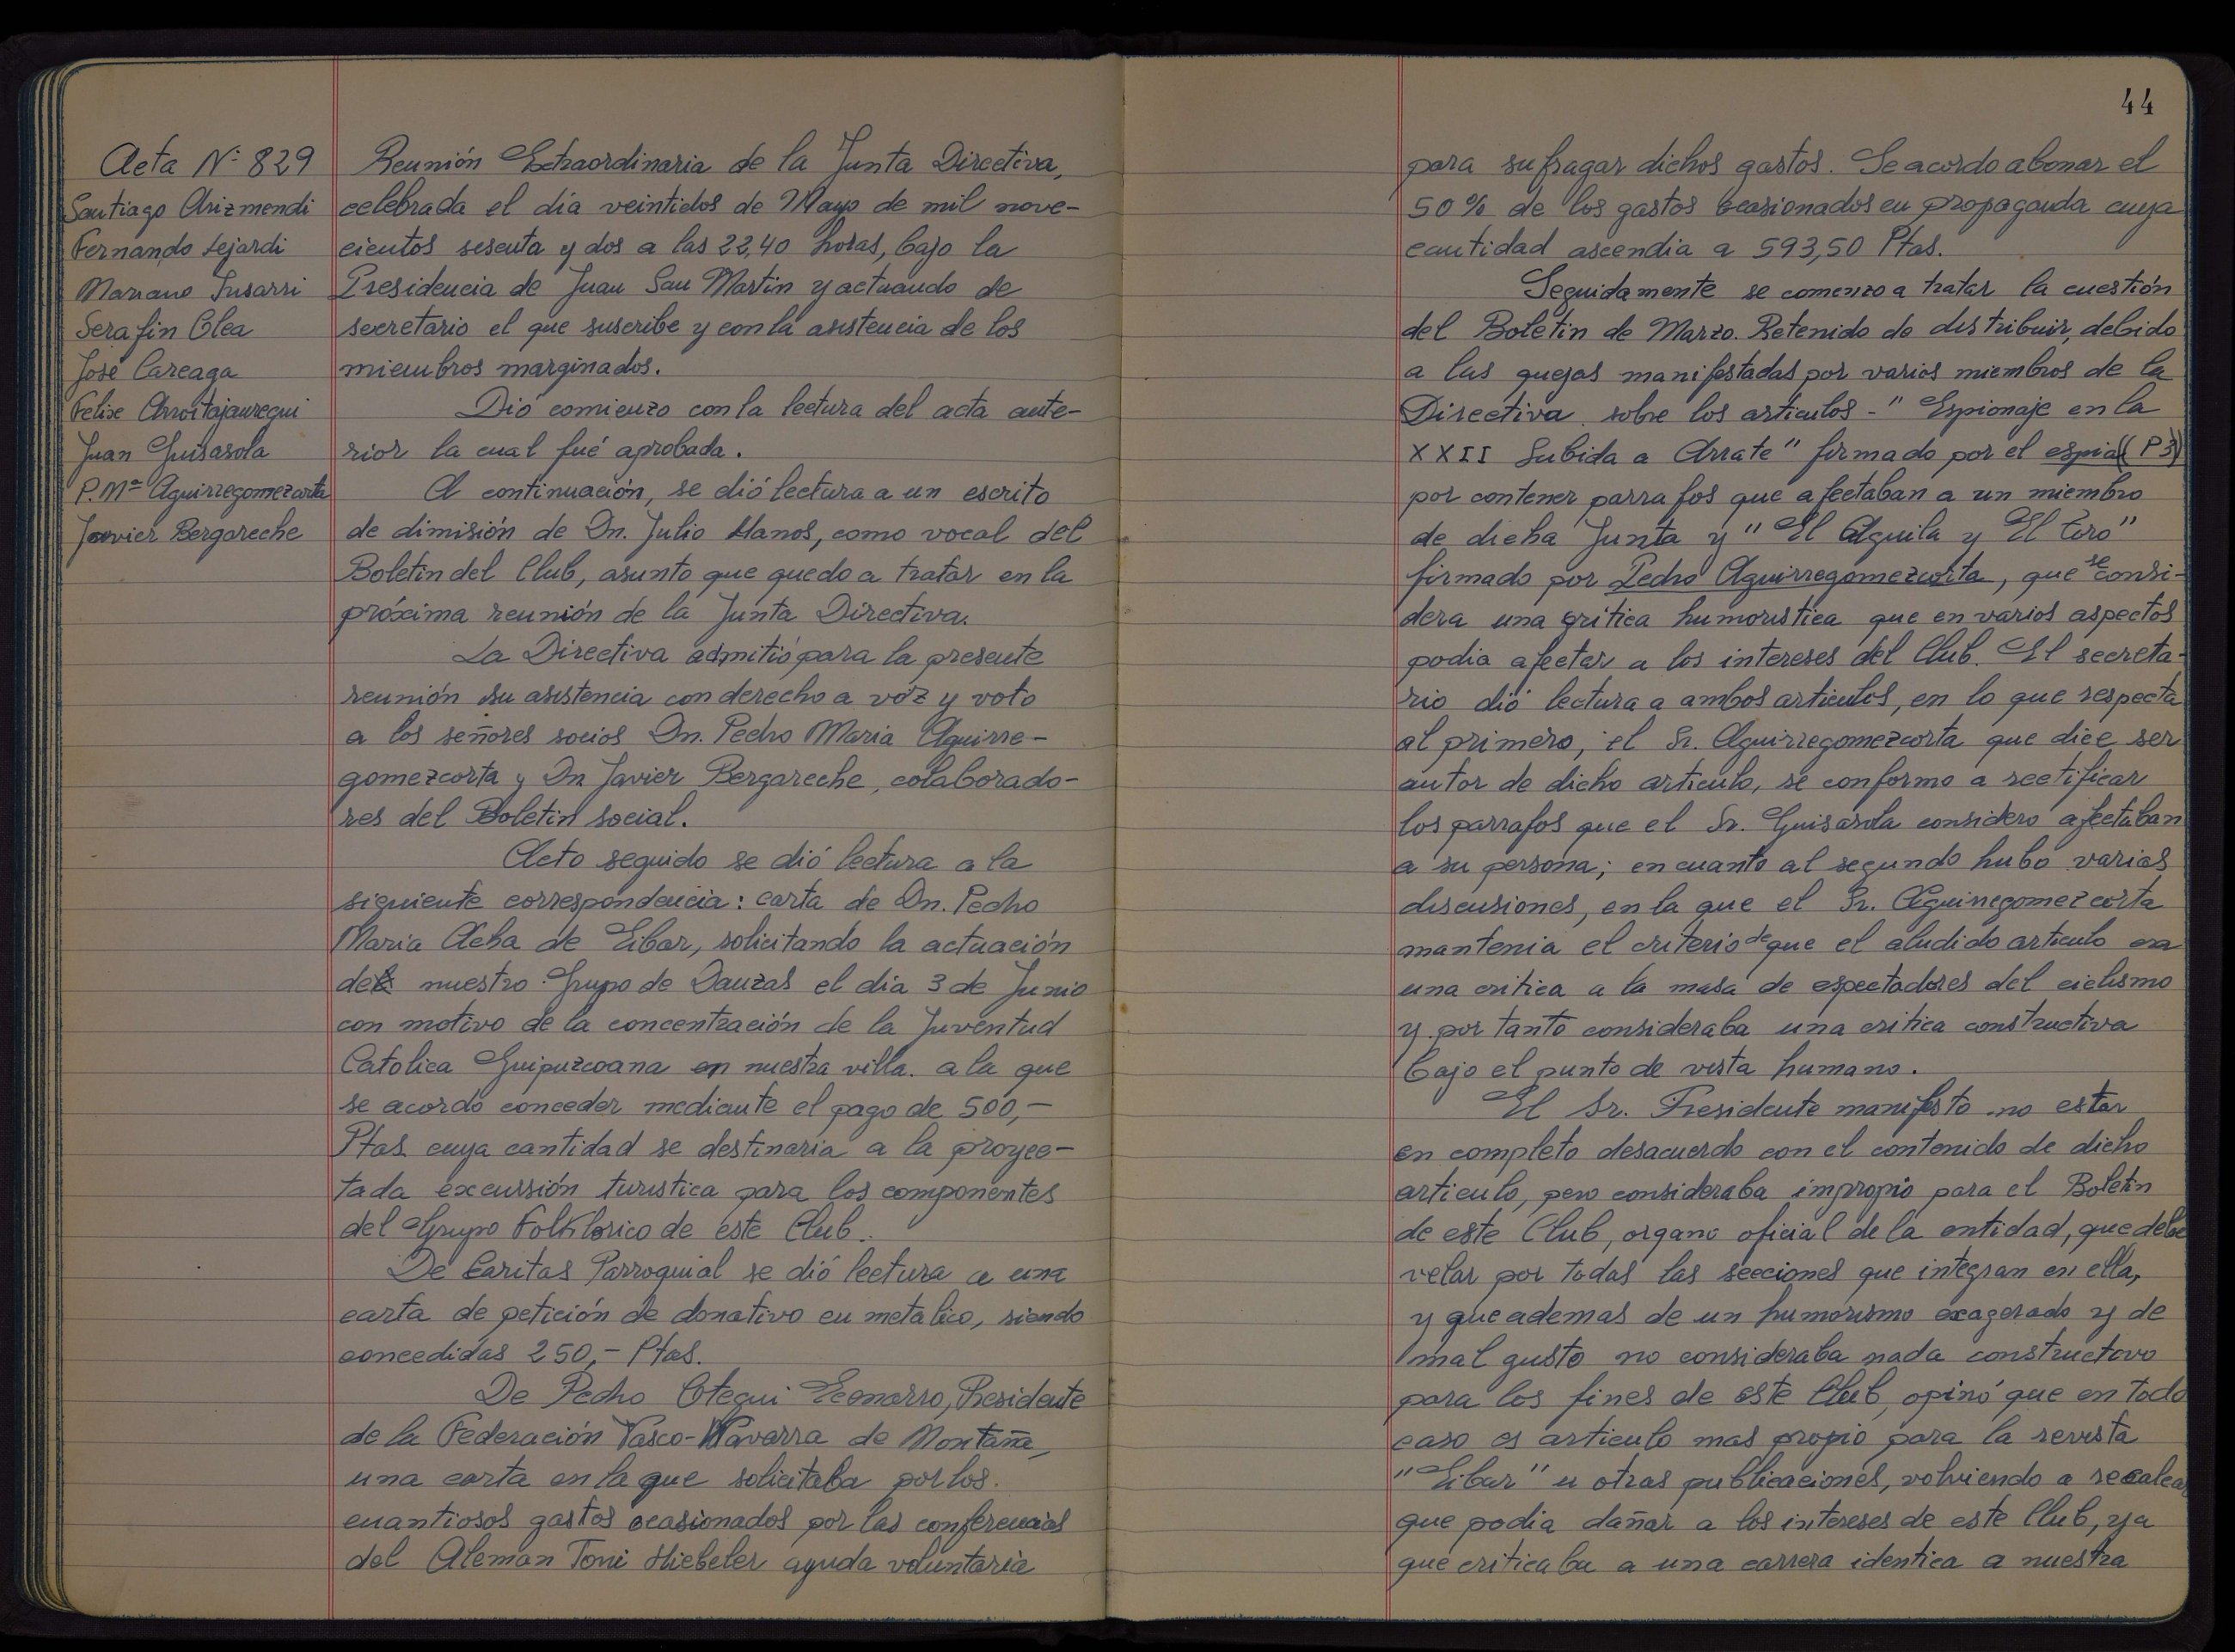 Acta Nº 829
Santiago Arizmendi
Fernando Lejardi
Mariano Jusarri
Serafin Olea
José Careaga
Felixe Arroitajauregui
Juan Guisasola
P. Mª Aguirregomezcorta
Javier Bergareche
Reunión Extraordinaria de la Junta Directiva,
celebrada el día veintidos de Mayo de mil nove-
cientos sesenta y dos a las 22,40 horas, bajo la
Presidencia de Juan San Martin y actuando de
secretario el que suscribe y con la asistencia de los
miembros marginados.
Dió comienzo con la lectura del acta ante-
rior la cual fué aprobada.
A continuación, se dió lectura a un escrito
de dimisión de Dn. Julio Llanos, como vocal del
Boletin del Club, asunto que quedo a tratar en la
próxima reunión de la Junta Directiva.
La Directiva admitió para la presente
reunión su asistencia con derecho a vóz y voto
a los señores socios Dn. Pedro Maria Aguirre-
gomezcorta y Dn. Javier Bergareche, colaborado-
res del Boletin social.
Acto seguido se dió lectura a la
siguiente correspondencia: carta de Dn. Pedro
Maria Acha de Eibar, solicitando la actuación
de nuestro Grupo de Danzas el dia 3 de Junio
con motivo de la concentración de la Juventud
Catolica Guipuzcoana en nuestra villa. a la que
se acordó conceder mediante el pago de 500,-
Ptas cuya cantidad se destinaria a la proyec-
tada excursión turistica para los componentes
del Grupo Folklorico de este Club.
De Caritas Parroquial se dió lectura a una
carta de petición de donativo en metalico, siendo
concedidas 250,- Ptas.
De Pedro Otegui Ecenarro, Presidente
de la Federación Vasco-Navarra de Montaña,
una carta en la que solicitaba por los.
cuantiosos gastos ocasionados por las conferencias
del Aleman Toni Hiebeler ayuda voluntaria
44
para sufragar dichos gastos. Se acordo abonar el
50% de los gastos ocasionados en propaganda cuya
cantidad ascendia a 593,50 Ptas.
Seguidamente se comenzo a tratar la cuestión
del Boletin de Marzo. Retenido de distribuir, debido
a las quejas manifestadas por varios miembros de la
Directiva sobre los articulos -" Espionaje en la
XXII Subida a Arrate" firmado por el espia (P 3)
por contener parrafos que afectaban a un miembro
de dicha Junta y "El Aguila y El Toro"
firmado por Pedro Aguirregomezcorta, que se consi-
dera una critica humoristica que en varios aspectos
podia afectar a los intereses del Club. El secreta-
rio dió lectura a ambos articulos, en lo que respecta
al primero, el Sr. Aguirregomezcorta que dice ser
autor de dicho articulo, se conformo a rectificar
los parrafos que el Sr. Guisasola considero afectaban
a su persona; en cuanto al segundo hubo varias
discusiones, en la que el Sr. Aguirregomezcorta
mantenia el criterio de que el aludido articulo era
una critica a la masa de espectadores del ciclismo
y por tanto consideraba una critica constructiva
bajo el punto de vista humano.
El Sr. Presidente manifesto no estar
en completo desacuerdo con el contenido de dicho
articulo, pero consideraba impropio para el Boletin
de este Club, organo oficial de la entidad, que debe
velar por todas las secciones que integran en ella,
y que ademas de un humorismo exagerado y de
mal gusto no consideraba nada constructovo
para los fines de este Club, opinó que en todo
caso es articulo mas propio para la revista
"Eibar" u otras publicaciones, volviendo a recalcar
que podia dañar a los intereses de este Club, ya
que criticaba a una carrera identica a nuestra